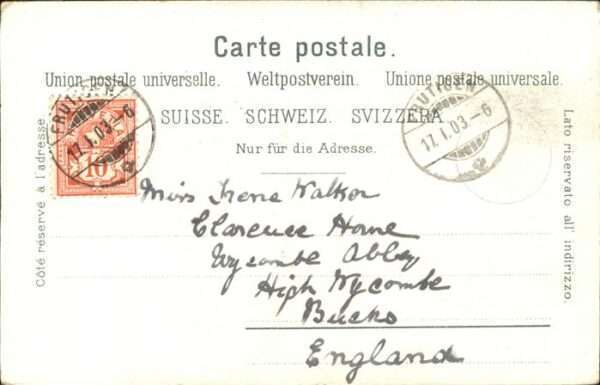 Carte postale.
Union postale universelle. Weltpostverein. Unione postale universale.
SUISSE. SCHWEIZ. SVIZZERA.
Nur für die Adresse.
Côté réservé à l'adresse.
Lato riservato all' indirizzo.
FRUTIGEN
17. I. 03.-6
10
FRUTIGEN
17. I. 03.-6
Miss Irene Walker
Clarence House
Wycombe Abbey
High Wycombe
Bucks
England